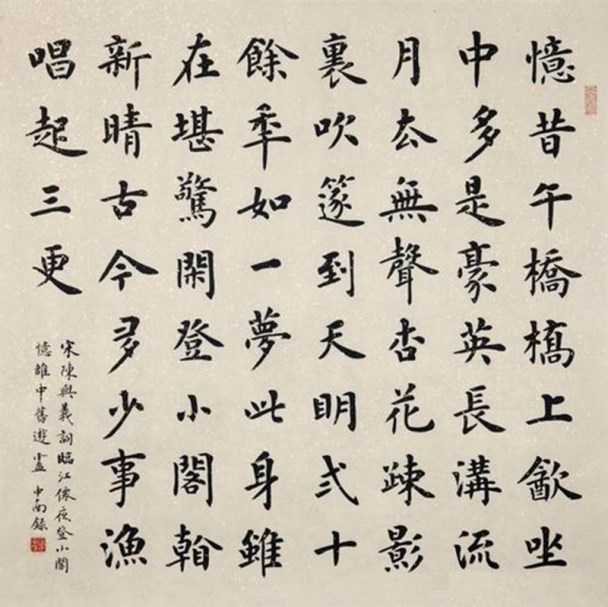 憶昔午橋橋上飲坐
中多是豪英長溝流
月去無聲杏花疎影
裏吹篴到天明弍十
餘年如一夢此身雖
在堪驚閑登小閣看
新晴古今多少事漁
唱起三更
宋陳與義詞臨江僊夜登小閣
憶雒中舊遊盧中南錄